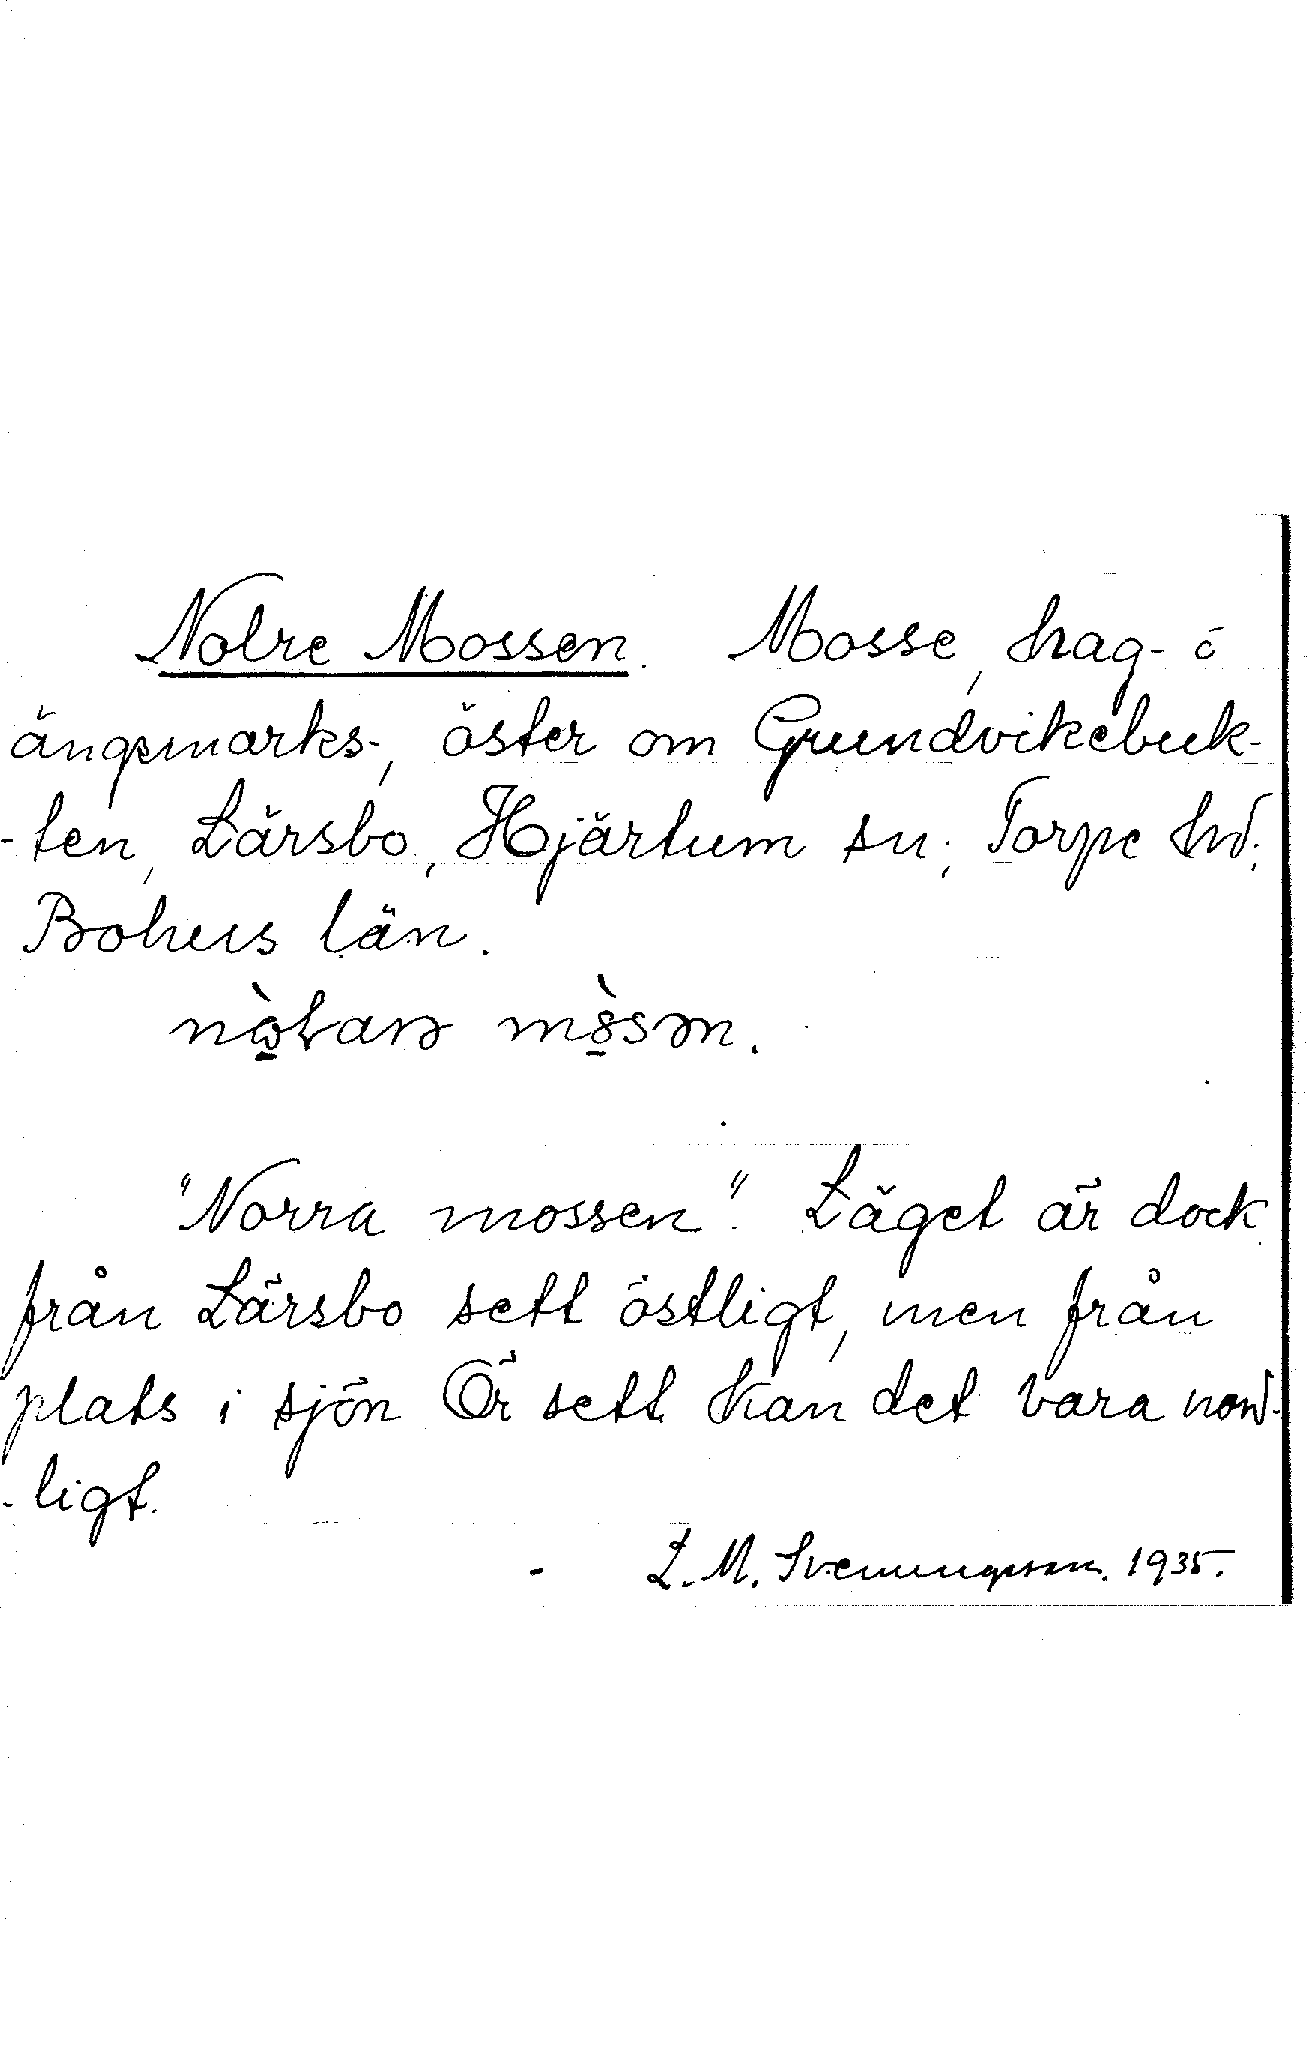 Nolre Mossen. Mosse, hag- o
ängsmarks-, öster om Grundvikebuk-
-ten, Lärsbo, Hjärtum sn; Torpe hd;
Bohus län.
mossen.
"Norra mossen". Läget är dock
från Lärsbo sett östligt, men från
plats i sjön Ör sett kan det vara nord-
-ligt.
- L. M. Svenungsson. 1935.